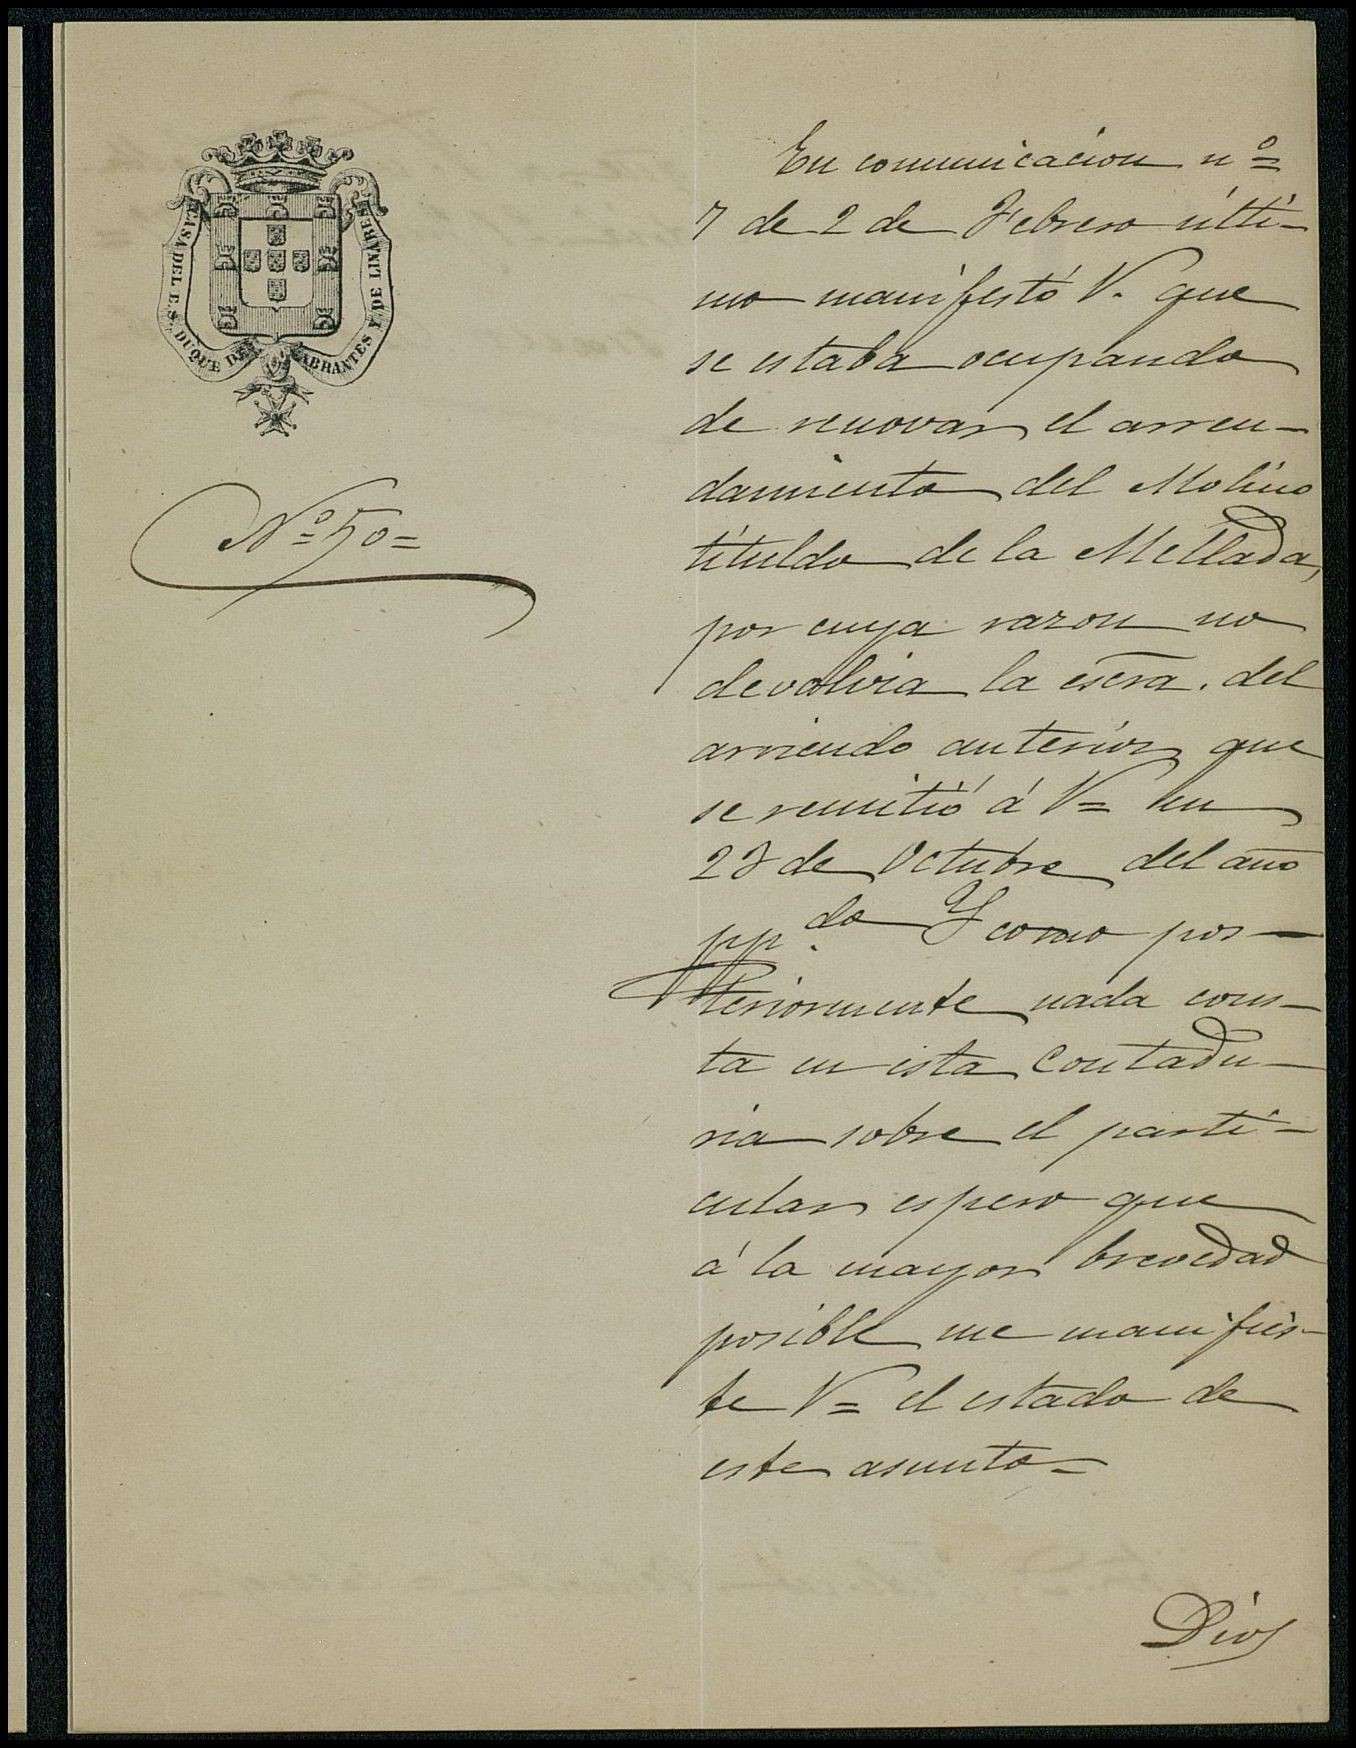 CASA DEL E. S. DUQUE DE ABRANTES Y DE LINARES
Nº 50=
En comunicacion nº
7 de 2 de Febrero últi-
mo manifestó V. que
se estaba ocupando
de renovar el arren-
damiento del Molino
tituldo de la Mellada,
por cuya razon no
devolvia la escra. del
arriendo anterior que
se remitió á V= en
23 de Octubre del año
pp.do Y como pos-
teriormente nada cons-
ta en esta Contadu-
ria sobre el parti-
cular espero que
á la mayor brevedad
posible me manifies-
te V= el estado de
este asunto=
Dios